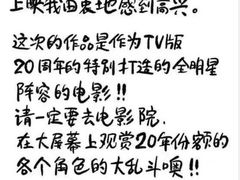 上映我由衷地感到高兴。
这次的作品是作为TV版
20周年的特别打造的全明星
阵容的电影!!
请一定要去电影院,
在大屏幕上观赏20年份额的
各个角色的大乱斗噢!!